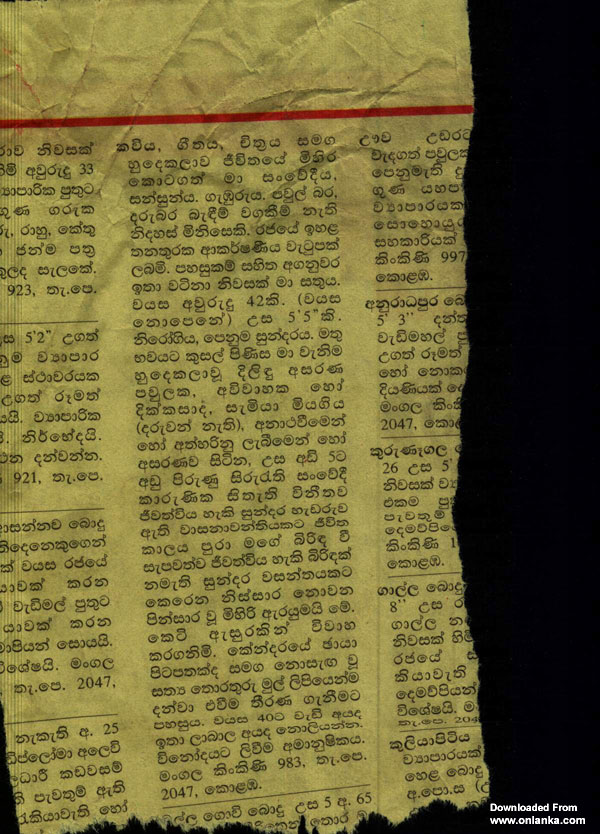 ාව නිවසක්
හිමි අවුරුදු 33
ව්‍යාපාරික පුතුට
ගුණ ගරුක
රු, රාහු, කේතු
ජන්ම පත්‍ර
සැලකේ.
923, තැ.පෙ.
උස 5'2" උගත්
ව්‍යාපාර
ස්ථාවරයක
උගත් රූමත්
ව්‍යාපාරික
නිර්භේදයි.
දන්වන්න.
921, තැ.පෙ.
බොදු
දෙනෙකුගෙන්
වයස රජයේ
කරන
වැඩිමල් පුතුට
කරන
සොයයි.
විශේෂයි. මංගල
තැ.පෙ. 2047,
නැකැති අ. 25
ඩිප්ලෝමා අලෙවි
කඩවසම්
පැවතුම් ඇති
රැකියාවැති හෝ
කවිය, ගීතය, චිත්‍රය සමග
හුදෙකලාව ජීවිතයේ මිහිර
කොටගත් මා සංවේදීය,
සන්සුන්ය. ගැඹුරුය. පවුල් බර,
දරුබර බැඳීම් වගකීම් නැති
නිදහස් මිනිසෙකි. රජයේ ඉහළ
තනතුරක ආකර්ෂණීය වැටුපක්
ලබමි. පහසුකම් සහිත අගනුවර
ඉතා වටිනා නිවසක් මා සතුය.
වයස අවුරුදු 42කි. (වයස
නොපෙනේ) උස 5'5"කි.
නිරෝගීය, පෙනුම සුන්දරය. මතු
භවයට කුසල් පිණිස මා වැනිම
හුදෙකලාවූ දිළිඳු අසරණ
පවුලක, අවිවාහක හෝ
දික්කසාද, සැමියා මියගිය
(දරුවන් නැති), අනාථවීමෙන්
හෝ අත්හරිනු ලැබීමෙන් හෝ
අසරණව සිටින, උස අඩි 5ට
අඩු පිරුණු සිරුරැති සංවේදී
කාරුණික සිතැති විනීතව
ජීවත්විය හැකි සුන්දර හැඩරුව
ඇති වාසනාවන්තියකට ජීවිත
කාලය පුරා මගේ බිරිඳ වී
සැපවත්ව ජීවත්විය හැකි බිරිඳක්
නමැති සුන්දර වසන්තයකට
කෙරෙන නිස්සාර නොවන
පින්සාර වූ මිහිරි ඇරයුමයි මේ.
කෙටි ඇසුරකින් විවාහ
කරගනිමි. කේන්දරයේ ඡායා
පිටපතක්ද සමග නොසැඟ වූ
සත්‍ය තොරතුරු මුල් ලිපියෙන්ම
දන්වා එවීම තීරණ ගැනීමට
පහසුය. වයස 40ට වැඩි අයද
ඉතා ලාබාල අයද නොලියන්න.
විනෝදයට ලිවීම අමානුෂිකය.
මංගල කිංකිණි 983, තැ.පෙ.
2047, කොළඹ.
ගොවි බොදු උස 5 අ. 65
තොර
ඌව උඩරට
වැදගත් පවුලක
පෙනුමැති
ගුණ යහපත්
ව්‍යාපාරයක
සොහොයුරු
සහකාරියක්
කිංකිණි 997
කොළඹ.
අනුරාධපුර
5' 3''
වැඩිමහල්
උගත් රූමත්
හෝ
දියණියක්
මංගල
2047, කොළඹ
කුරුණෑගල
26 උස 5'
නිවසක්
එකම
පැවතුම්
දෙමව්පියෝ
කිංකිණි 1
කොළඹ.
ගාල්ල බොදු
8'' උස
ගාල්ල
නිවසක් හිමි
රජයේ
කියාවැති
දෙමව්පියන්
විශේෂයි.
තැ.පෙ. 204
කුලියාපිටිය
ව්‍යාපාරයක්
හෙළ බොදු
අ.පො.ස
Downloaded From
www.onlanka.com